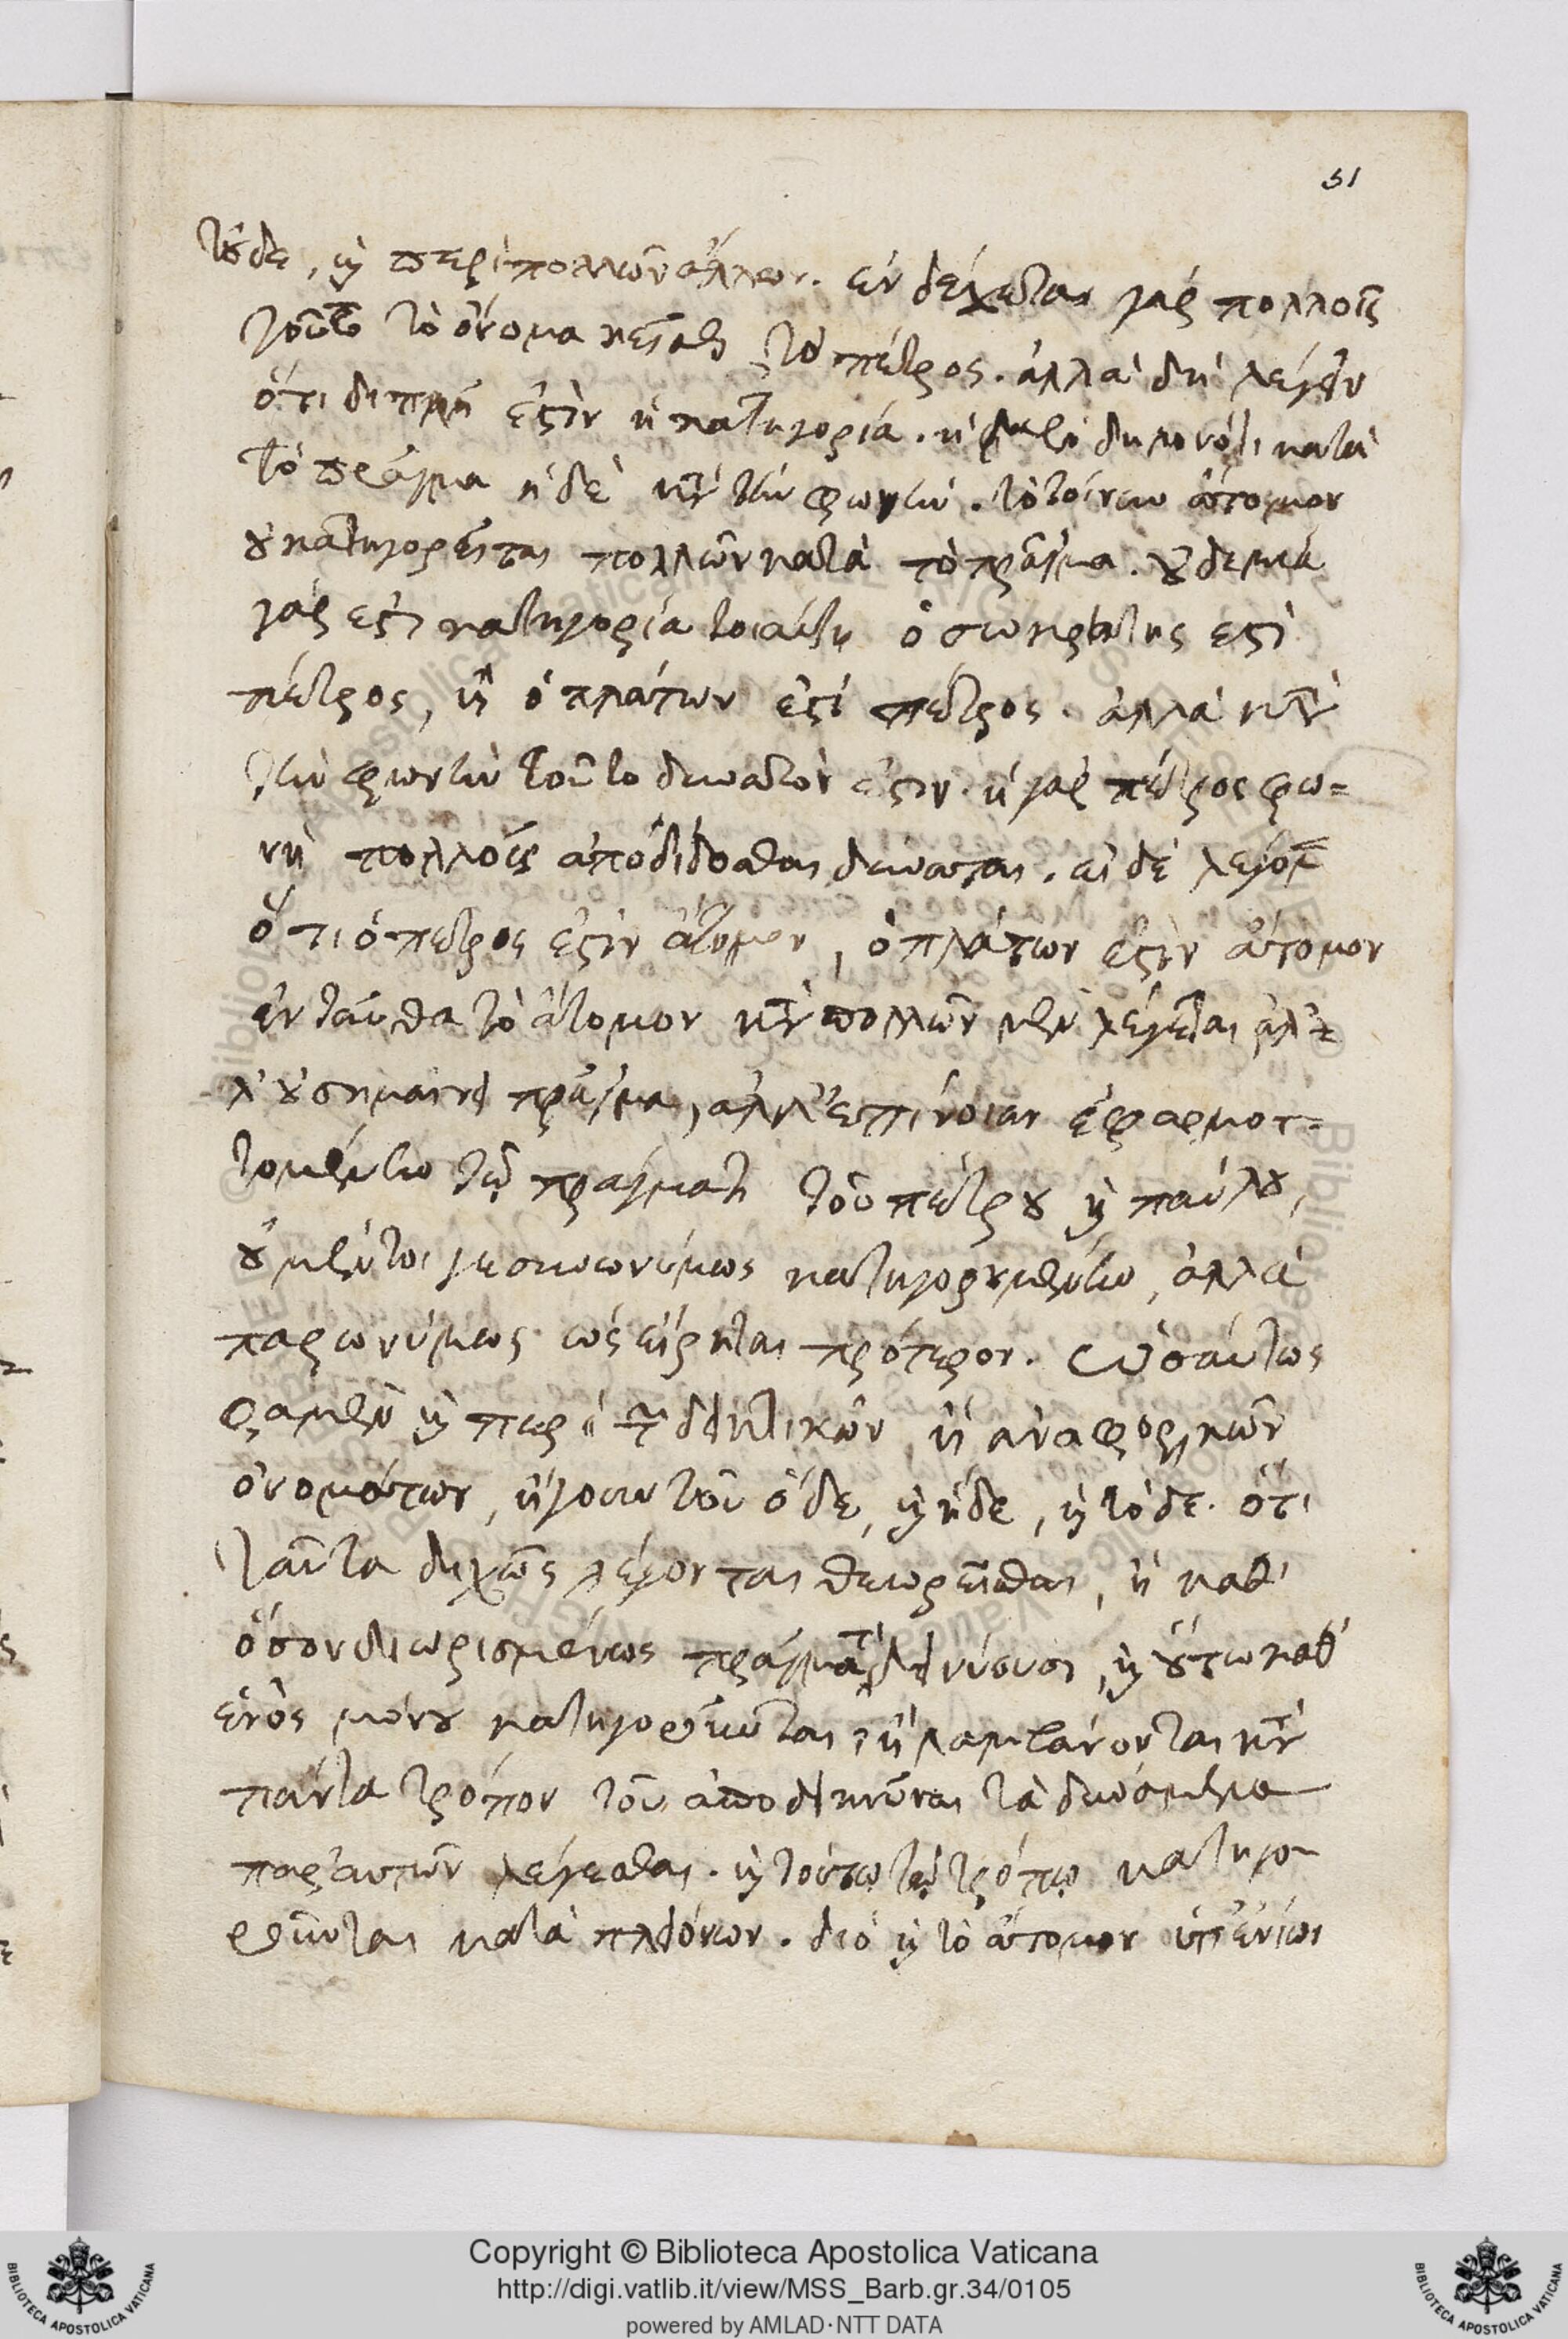 51
τοῦδε, καὶ περὶ πολλῶν ἄλλων. ἐνδέχεται γὰρ πολλοῖς
τοῦτο τὸ ὄνομα κεῖσθαι τὸ πέτρος. ἀλλὰ δὴ λέγειν
ὅτι διπλῆ ἐστὶν ἡ κατηγορία. ἡ μὲν δηλονότι κατὰ
τὸ πρᾶγμα ἡ δὲ κατὰ τὴν φωνήν. τὸ τοίνυν ἄτομον
οὐ κατηγορεῖται πολλῶν κατὰ τὸ πρᾶγμα. οὐδεμία
γάρ ἐστι κατηγορία τοιαύτη ὁ σωκράτης ἐστὶ
πέτρος, ἢ ὁ πλάτων ἐστὶ πέτρος. ἀλλὰ κατὰ
τὴν φωνὴν τοῦτο δυνατόν ἐστιν. ἡ γὰρ πέτρος φω=
νὴ πολλοῖς ἀποδίδοσθαι δύναται. εἰ δὲ λέγομεν
ὅτι ὁ πέτρος ἐστὶν ἄτομον, ὁ πλάτων ἐστὶν ἄτομον
ἐνταῦθα τὸ ἄτομον κατὰ πολλῶν μὲν λέγεται ἀλ=
λ' οὐ σημαίνει πρᾶγμα, ἀλλ' ἐπίνοιαν ἐφαρμοτ=
τομένην τῷ πράγματι τοῦ πέτρου καὶ παύλου,
οὐ μέντοι γε συνωνύμως κατηγορουμένην, ἀλλὰ
παρωνύμως ὡς εἴρηται πρότερον. ὡσαύτως
φαμὲν καὶ περὶ τῶν δεικτικῶν ἢ ἀναφορικῶν
ὀνομάτων, ἤγουν τοῦ ὅδε, καὶ ἥδε, καὶ τόδε. ὅτι
ταῦτα διχῶς λέγονται θεωρεῖσθαι, ἢ καθ'
ὅσον διωρισμένως πράγματι δεικνύουσι, καὶ οὕτω καθ'
ἑνὸς μόνου κατηγοροῦνται, ἢ λαμβάνονται κατὰ
πάντα τρόπον τοῦ ἀποδεικνύναι τὰ δυνάμενα
παρ' αὐτῶν λέγεσθαι. καὶ τούτῳ τῷ τρόπῳ κατηγο
ροῦνται κατὰ πλειόνων. διὸ καὶ τὸ ἄτομον ὑπ' ἐνίων
Copyright © Biblioteca Apostolica Vaticana
http://digi.vatlib.it/view/MSS_Barb.gr.34/0105
powered by AMLAD·NTT DATA
BIBLIOTECA APOSTOLICA VATICANA
BIBLIOTECA APOSTOLICA VATICANA